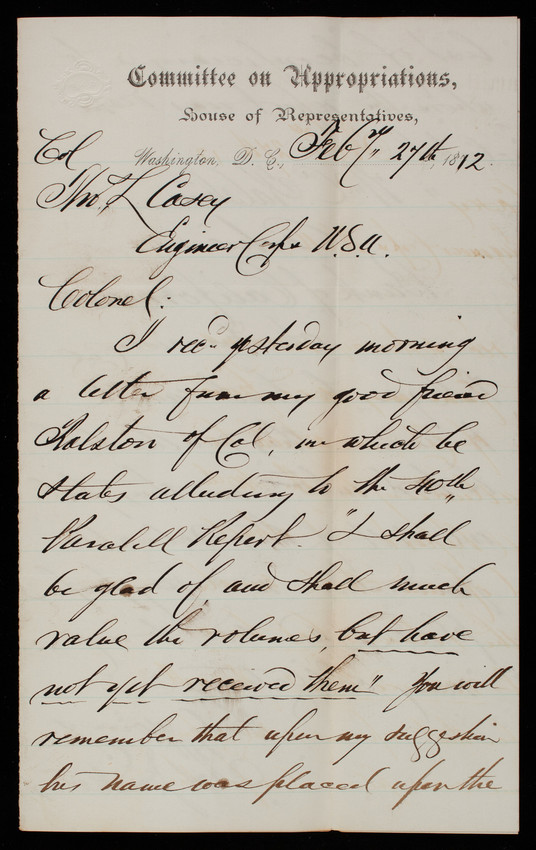 Committee on Appropriations,
House of Representatives,
Washington, D. C., Feby 27th, 1872.
Col
Tho. L Casey
Engineer Corps U.S.A.
Colonel:
I recd yesterday morning
a letter from my good friend
Ralston of Cal, in which he
states alluding to the 40th
Parallell Report. "I shall
be glad of, and shall much
value the volumes, but have
not yet received them" You will
remember that upon my suggestion
his name was placed upon the